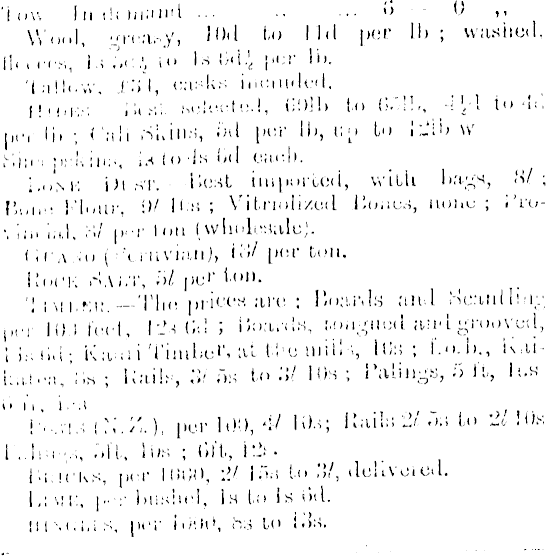 Tow In demand ... .. ... 6 0 ,,
Wool, greasy, 10d to 11d per lb; washed,
fleeces, 1s to 1s 6d½ per lb.
Tallow, casks included.
HIDES Best selected, 60lb to 65lb, 4½d to
per lb; Calf Skins, 5d per lb, up to 12lb w
Sheepskins, 1s to 4s 6d each.
BONE DUST.—Best imported, with bags, 8l;
Bone Flour, 9l 10s; Vitriolized Bones, none; Pro-
vincial, 8l per ton (wholesale).
GUANO (Peruvian), 13l per ton.
ROCK SALT, 5l per ton.
TIMBER.—The prices are; Boards and Scantling
per 100 feet, 12s 6d; Boards, tongued and grooved,
Kauri Timber, at the mills, 10s; f.o.b., Kai-
Rails, 3l 5s to 3l 10s; Palings, 5 ft,
6 ft,
(N.Z.), per 100, 4l 10s; Rails 2l 5s to 2l 10s
5ft, 10s; 6ft, 12s.
BRICKS, per 1000, 2l 15s to 3l, delivered.
LIME, per bushel, 1s to 1s 6d.
per 1000, 8s to 13s.